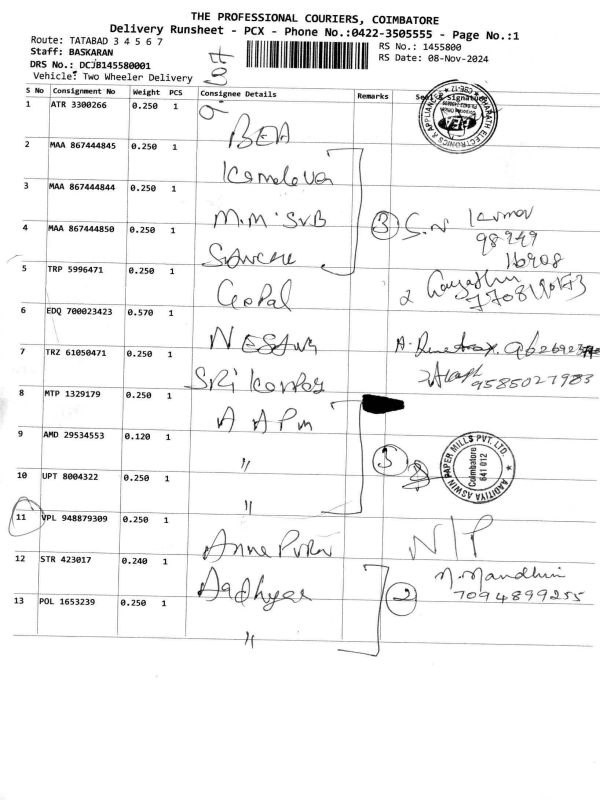 THE PROFESSIONAL COURIERS, COIMBATORE
Delivery Runsheet - PCX - Phone No.:0422-3505555 - Page No.:1
Route: TATABAD 3 4 5 6 7
RS No.: 1455800
Staff: BASKARAN
RS Date: 08-Nov-2024
DRS No.: DCJB145580001
Vehicle: Two Wheeler Delivery
S No Consignment No Weight PCS Consignee Details Remarks Seal & Signature
1 ATR 3300266 0.250 1 BEA
BHARATH ELECTRONICS & APPLIANCES
2 MAA 867444845 0.250 1
3 MAA 867444844 0.250 1 M.M. SVB
3 S.N Kumar
98949
16908
4 MAA 867444850 0.250 1
5 TRP 5996471 0.250 1 Gopal
6 EDQ 700023423 0.570 1
7 TRZ 61050471 0.250 1 Sri
9585027983
8 MTP 1329179 0.250 1 A A PM
9 AMD 29534553 0.120 1 "
3
AADITIYA ASWIN PAPER MILLS PVT. LTD.
Coimbatore
641 012
10 UPT 8004322 0.250 1 "
11 VPL 948879309 0.250 1 N/P
12 STR 423017 0.240 1 Aadhyaa
2 N. Nandhini
7094899255
13 POL 1653239 0.250 1 "